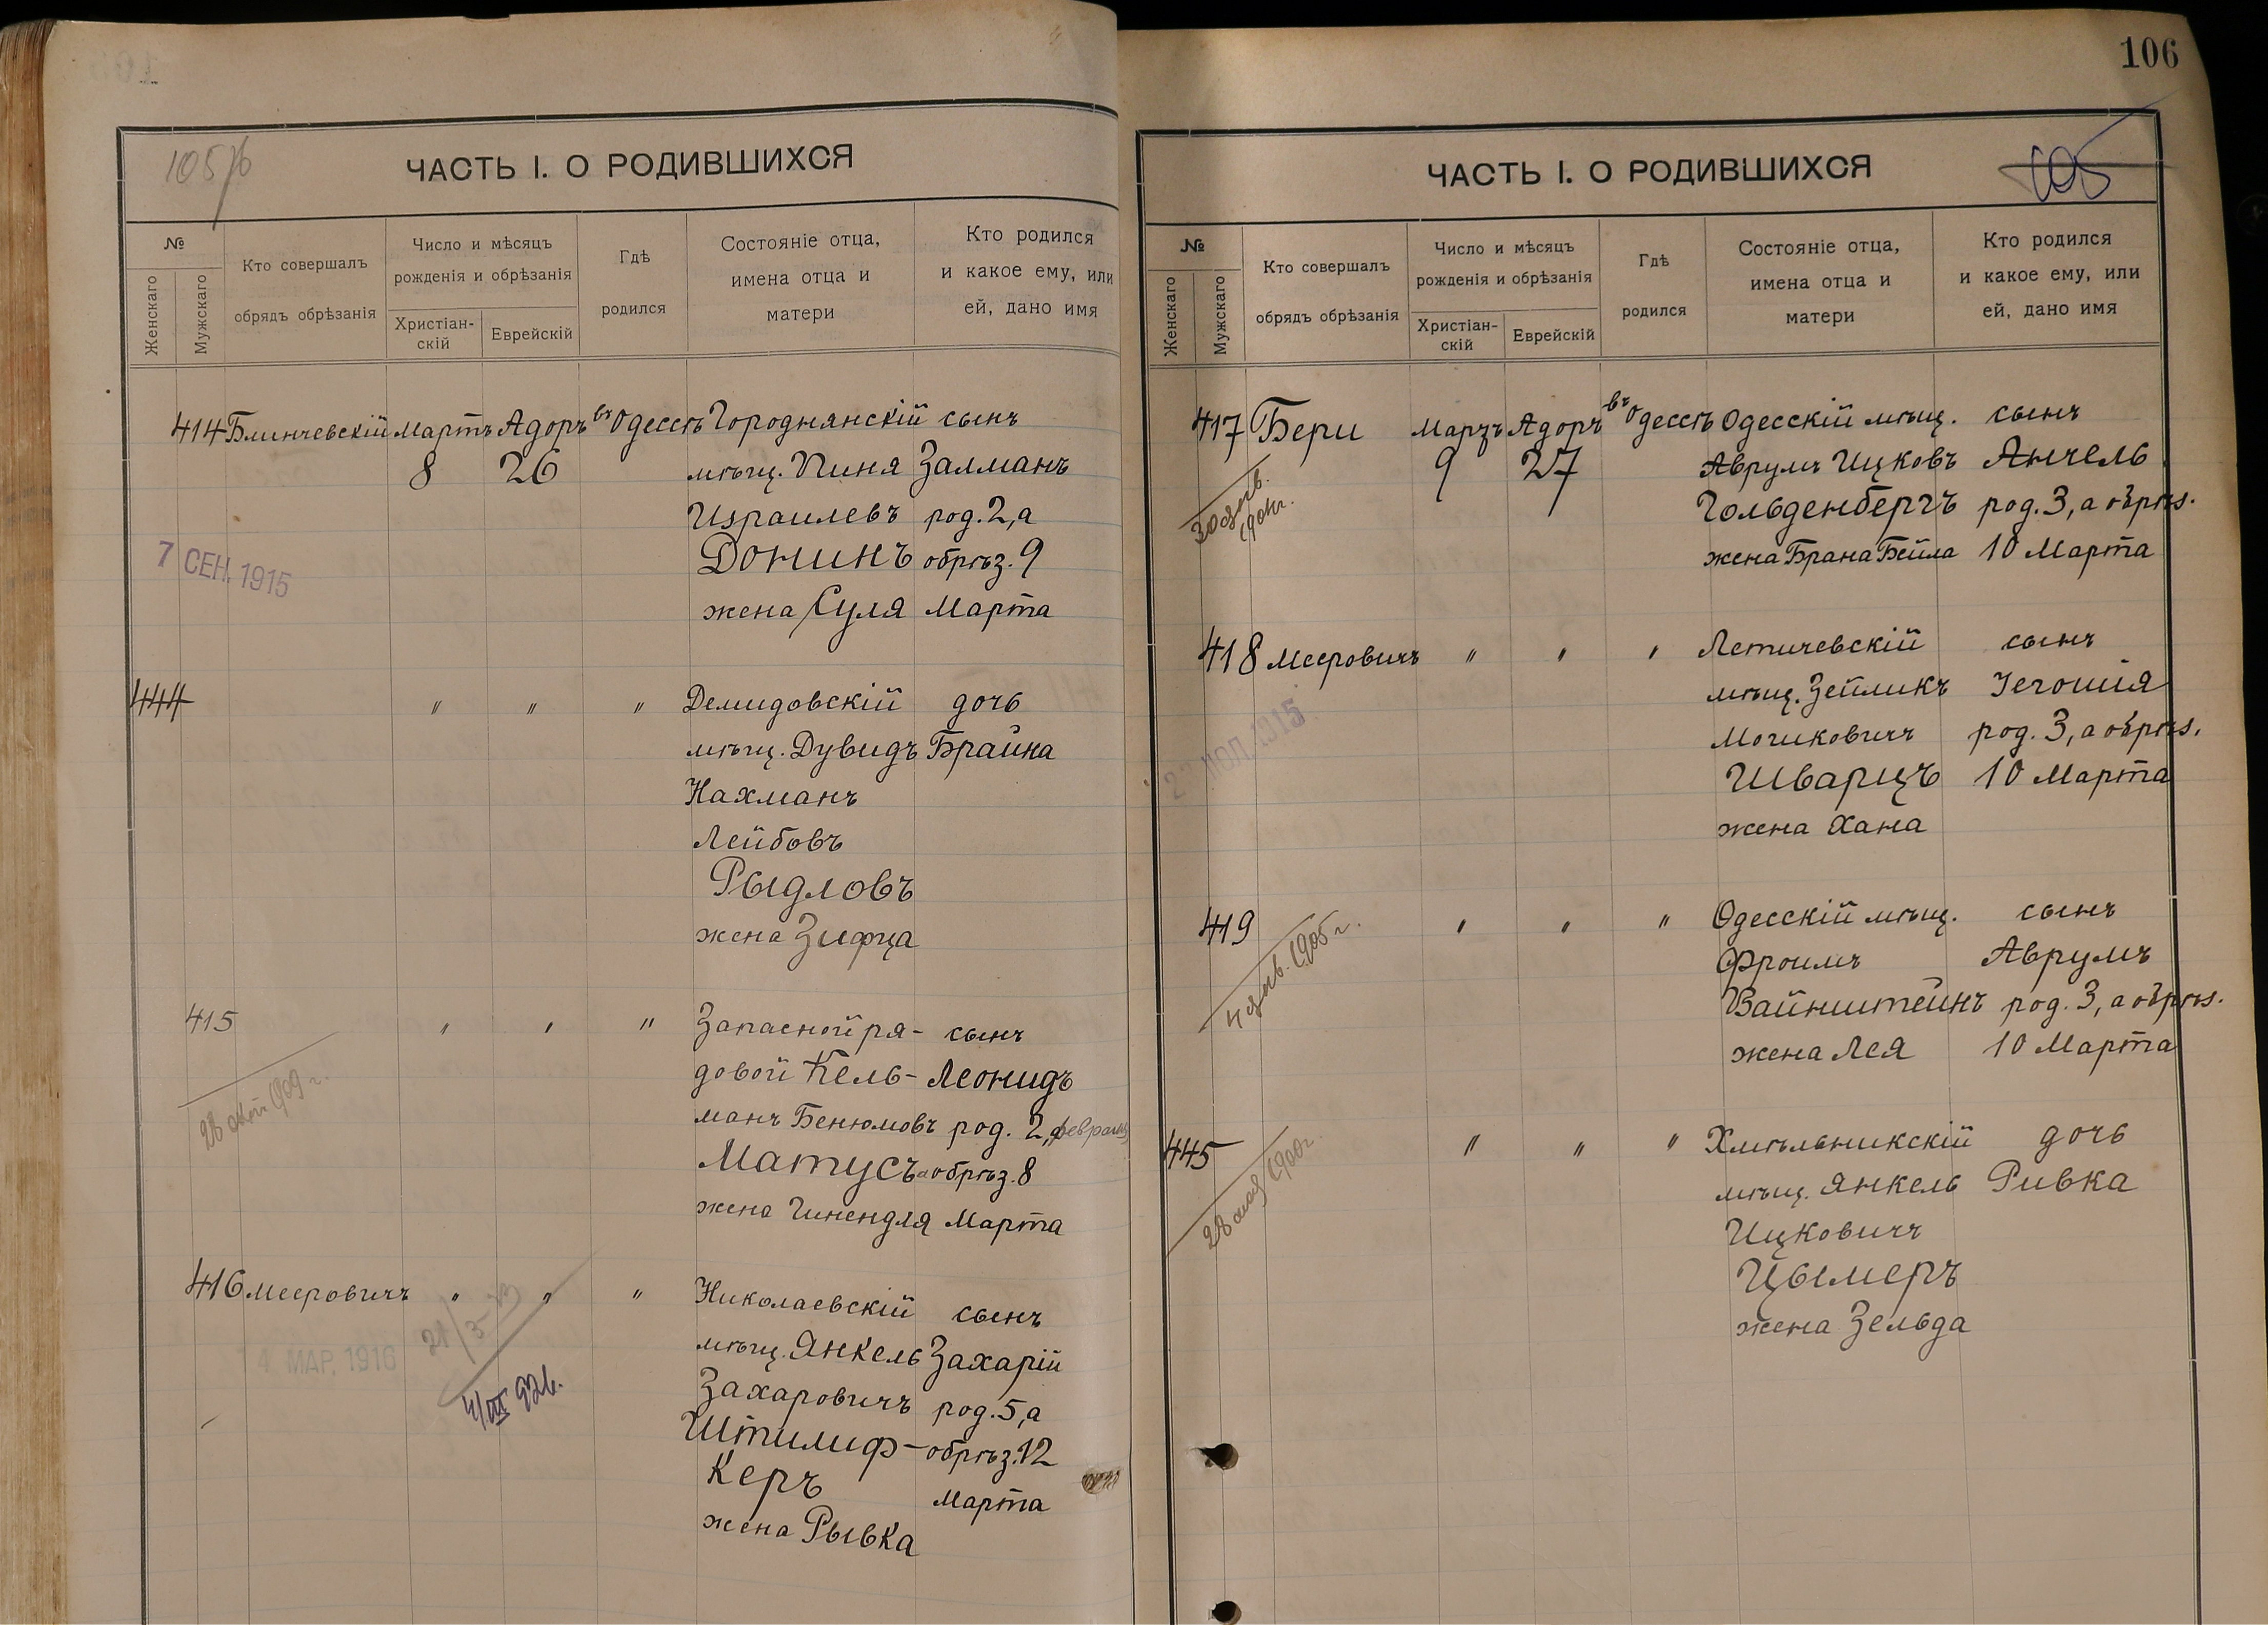 105
ЧАСТЬ I. О РОДИВШИХСЯ
№
Женскаго
Мужскаго
Кто совершалъ
обрядъ обрѣзанія
Число и мѣсяцъ
рожденія и обрѣзанія
Христіан-
скій
Еврейскій
Гдѣ
родился
Состояніе отца,
имена отца и
матери
Кто родился
и какое ему, или
ей, дано имя
414 Блинчевскій Мартъ Адоръ въ Одессѣ Городнянскій сынъ
8 26 мѣщ. Пиня Залманъ
Израилевъ род. 2, а
Донинъ обрѣз. 9
жена Суля Марта
7 СЕН. 1915
444 " " " Демидовскій дочь
мѣщ. Дувидъ Брайна
Нахманъ
Лейбовъ
Рыдловъ
жена Зифца
415 " " " Запасной ря- сынъ
довой Кель- Леонидъ
манъ Бенюмовъ род. 2, февраля
Матусъ а обрѣз. 8
жена Гинендля Марта
416 Мееровичъ " " " Николаевскій сынъ
мѣщ. Янкель Захарій
Захаровичъ род. 5, а
Штилиф- обрѣз. 12
керъ Марта
жена Рывка
4 МАР. 1916
4/III 926.
106
ЧАСТЬ I. О РОДИВШИХСЯ
105
№
Женскаго
Мужскаго
Кто совершалъ
обрядъ обрѣзанія
Число и мѣсяцъ
рожденія и обрѣзанія
Христіан-
скій
Еврейскій
Гдѣ
родился
Состояніе отца,
имена отца и
матери
Кто родился
и какое ему, или
ей, дано имя
417 Бери Марзъ Адоръ въ Одессѣ Одесскій мѣщ. сынъ
9 27 Аврумъ Ицковъ Анчель
Гольденбергъ род. 3, а обрѣз.
жена Брана Бейла 10 Марта
418 Мееровичъ " " " Летичевскій сынъ
мѣщ. Зейликъ Іегошія
Мошковичъ род. 3, а обрѣз.
Шварцъ 10 Марта
жена Хана
1915
419 " " " Одесскій мѣщ. сынъ
Фроимъ Аврумъ
Вайнштейнъ род. 3, а обрѣз.
жена Лея 10 Марта
4 янв. 1905 г.
445 " " " Хмѣльникскій дочь
мѣщ. Янкель Ривка
Ицковичъ
Цымеръ
жена Зельда